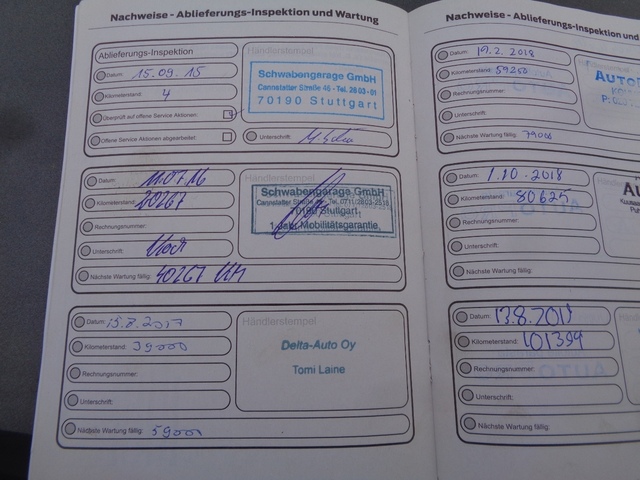 Nachweise - Ablieferungs-Inspektion und Wartung
Ablieferungs-Inspektion
Datum: 15.09.15
Kilometerstand: 4
Überprüft auf offene Service Aktionen:
Offene Service Aktionen abgearbeitet:
Händlerstempel
Schwabengarage GmbH
Cannstatter Straße 46 - Tel. 28 03-01
70190 Stuttgart
Unterschrift:
Datum: 11.07.16
Kilometerstand: 20267
Rechnungsnummer:
Unterschrift:
Nächste Wartung fällig: 40267 KM
Händlerstempel
Schwabengarage GmbH
Cannstatter Straße 46 - Tel. 0711/2803-2518
70190 Stuttgart
1 Jahr Mobilitätsgarantie
Datum: 15.8.2017
Kilometerstand: 39000
Rechnungsnummer:
Unterschrift:
Nächste Wartung fällig: 59000
Händlerstempel
Delta-Auto Oy
Tomi Laine
Nachweise - Ablieferungs-Inspektion und
Datum: 19.2.2018
Kilometerstand: 59250
Rechnungsnummer:
Unterschrift:
Nächste Wartung fällig: 79000
Datum: 1.10-2018
Kilometerstand: 80625
Rechnungsnummer:
Unterschrift:
Nächste Wartung fällig:
Datum: 13.8.2019
Kilometerstand: 101394
Rechnungsnummer:
Unterschrift:
Nächste Wartung fällig: